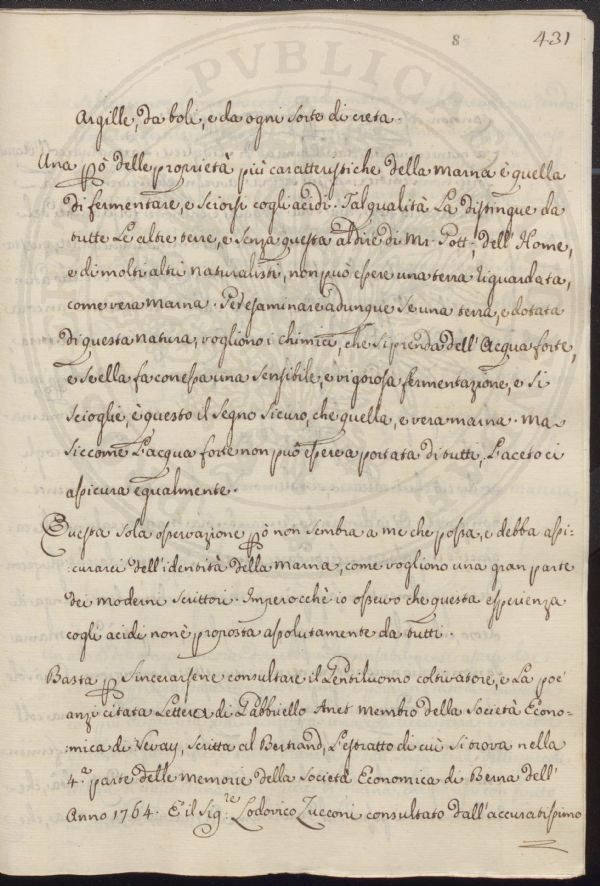 8 431
Argille, da boli, e da ogni sorte di creta.
Una però delle proprietà più caratteristiche della Marna è quella
di fermentare, e sciorsi cogli acidi. Tal qualità La distingue da
tutte Le altre terre, e senza questa al dire di Mr. Pott, dell' Home,
e di molti altri naturalisti, non può essere una terra riguardata,
come vera Marna. Per esaminare adunque se una terra, e dotata
di questa natura, vogliono i chimici, che si prenda dell' Acqua forte,
e se ella fa con essa una sensibile, e vigorosa fermentazione, e si
scioglie, è questo il segno sicuro, che quella, e vera marna. Ma
siccome L'acqua forte non può essere a portata di tutti, L'aceto ci
assicura egualmente.
Questa sola osservazione però non sembra a me che possa, e debba assi:
:curarci dell' identità della Marna, come vogliono una gran parte
dei moderni scrittori. Imperocchè io osservo che questa esperienza
cogli acidi non è proposta assolutamente da tutti.
Basta per sincerarsene consultare il Gentiluomo coltivatore, e La poc'
anzi citata Lettera di Gabbriello Anet membro della Società Econo:
:mica di Vevay, scritta al Bertrand, L'estratto di cui si trova nella
4.a parte delle memorie della Società Economica di Berna dell'
Anno 1764. E il Sig:re Lodovico Zucconi consultato dall' accuratissimo
PVBLICA